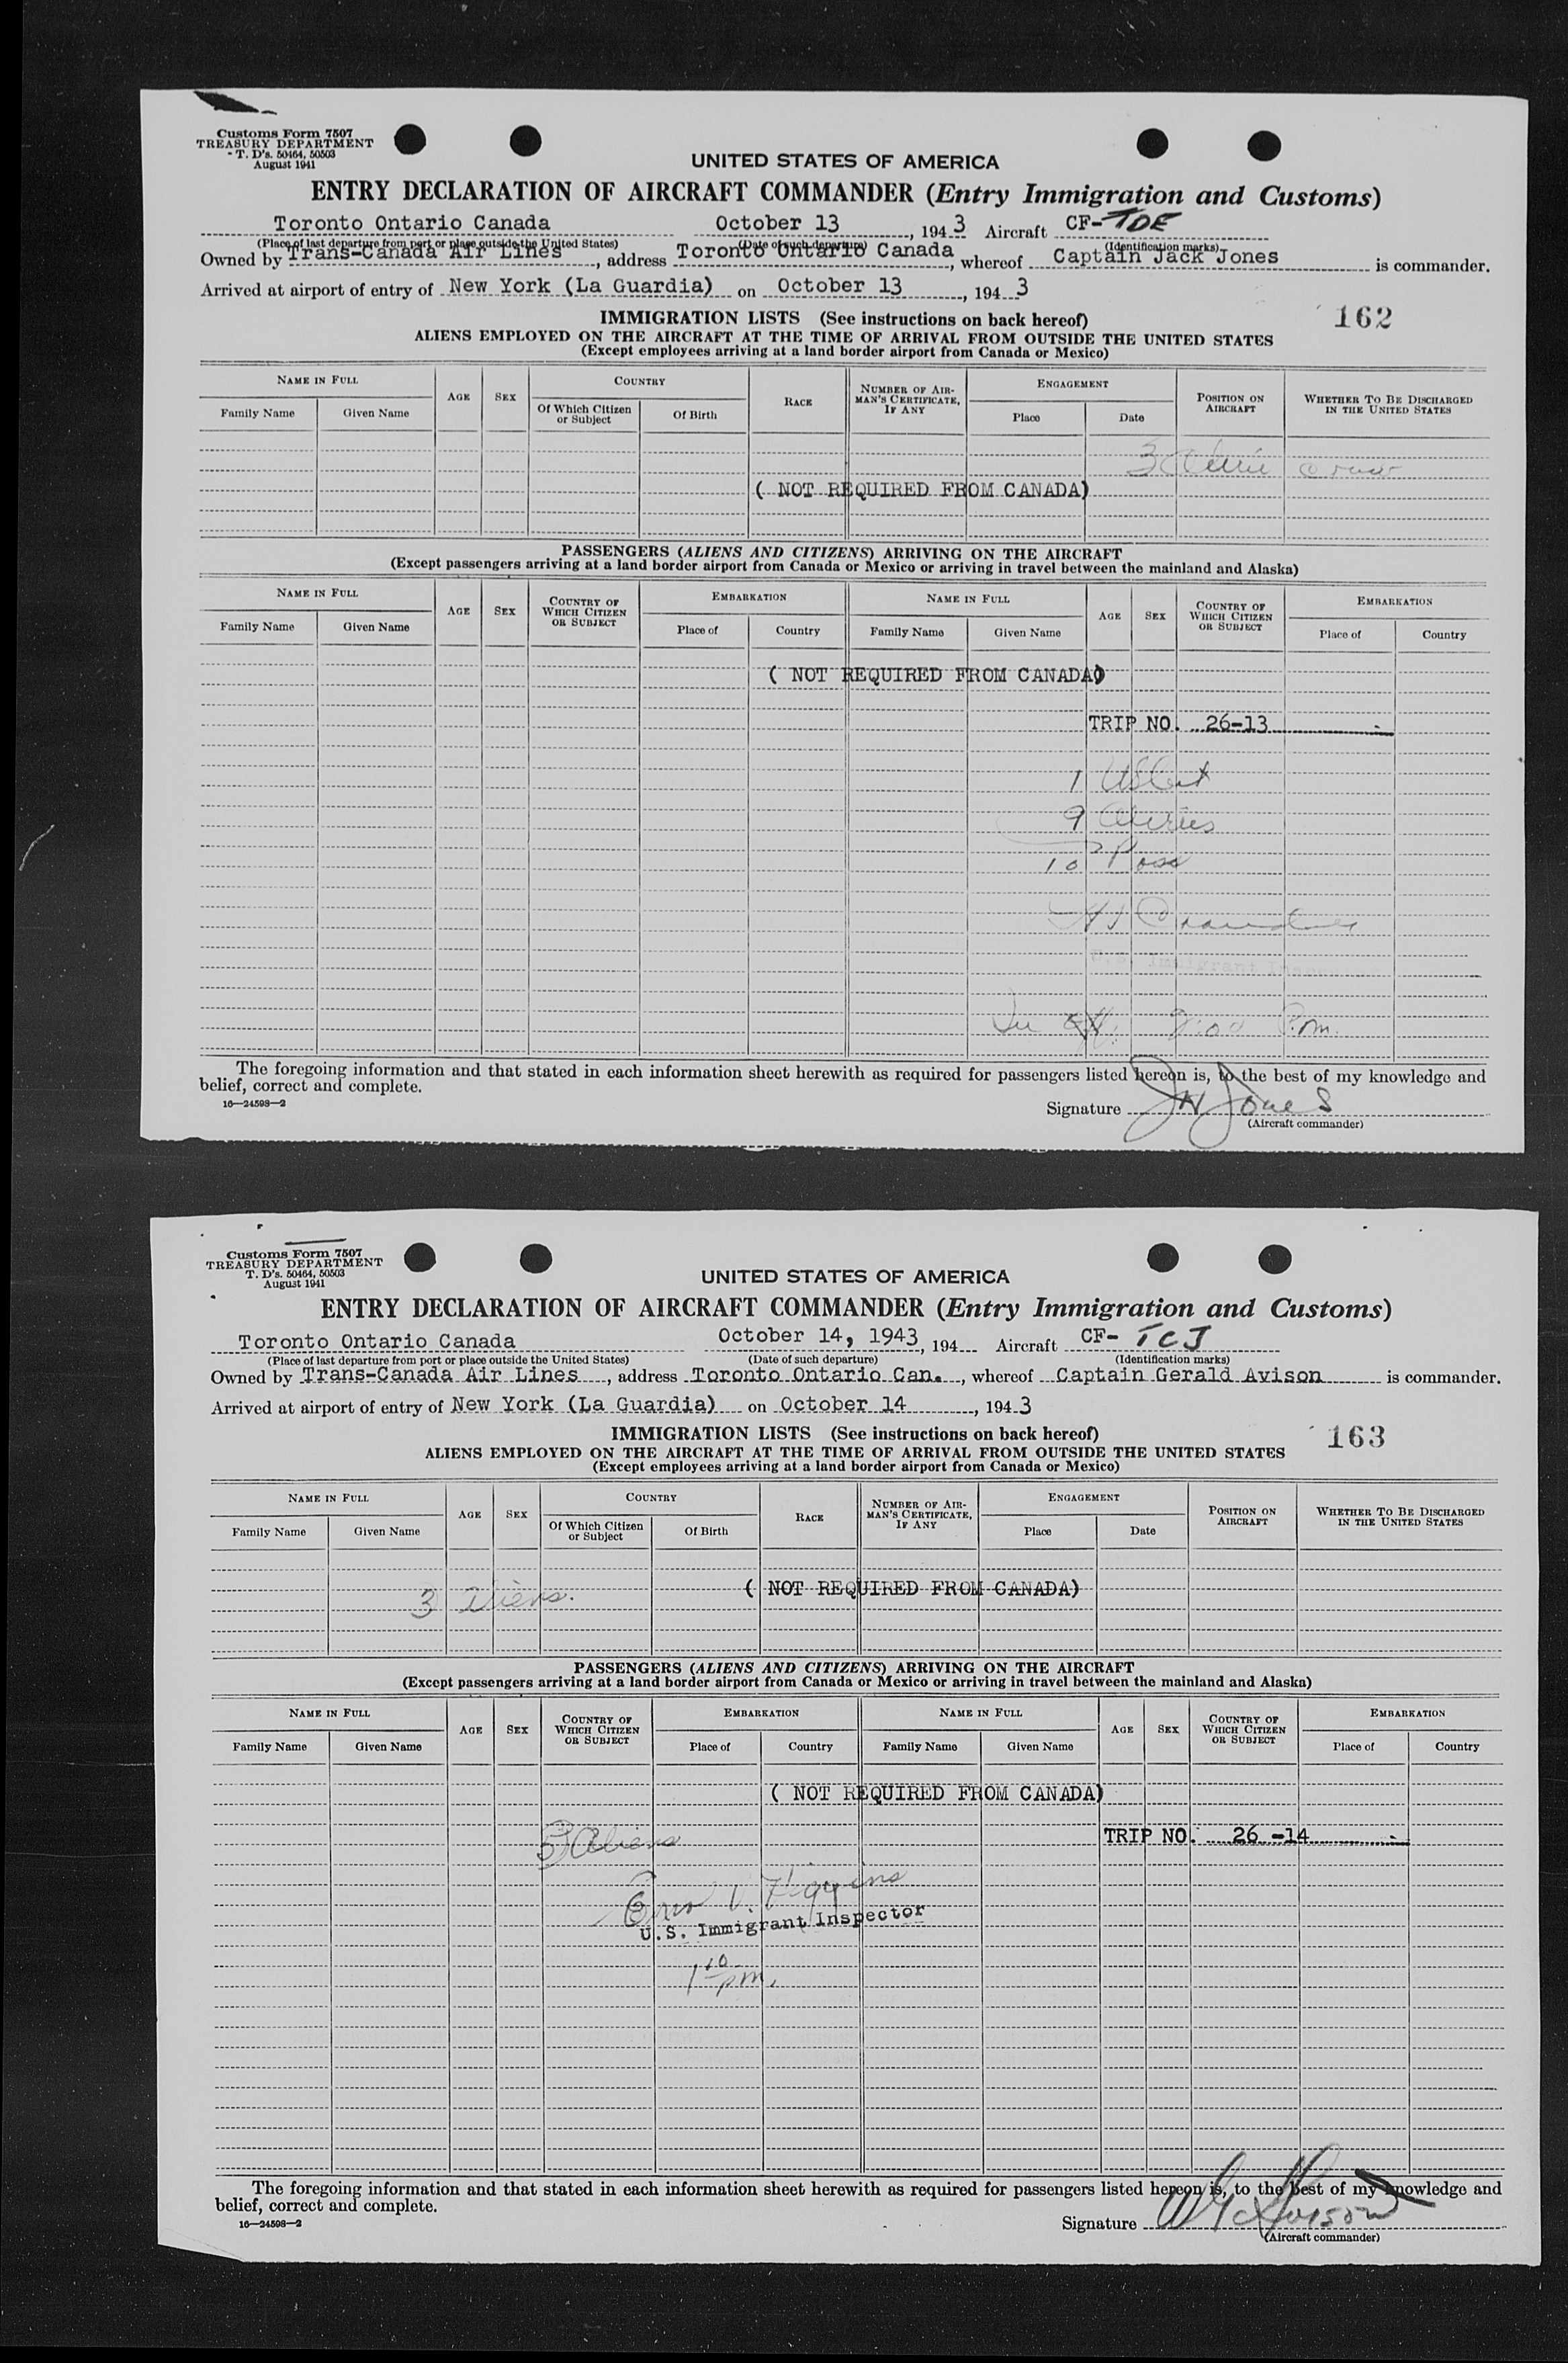 Customs Form 7507
TREASURY DEPARTMENT
T. D's. 50464, 50503
August 1941
UNITED STATES OF AMERICA
ENTRY DECLARATION OF AIRCRAFT COMMANDER (Entry Immigration and Customs)
Toronto Ontario Canada October 13, 1943 Aircraft CF-TDE
(Place of last departure from port or place outside the United States) (Date of such departure) (Identification marks)
Owned by Trans-Canada Air Lines, address Toronto Ontario Canada, whereof Captain Jack Jones is commander.
Arrived at airport of entry of New York (La Guardia) on October 13, 1943
162
IMMIGRATION LISTS (See instructions on back hereof)
ALIENS EMPLOYED ON THE AIRCRAFT AT THE TIME OF ARRIVAL FROM OUTSIDE THE UNITED STATES
(Except employees arriving at a land border airport from Canada or Mexico)
NAME IN FULL AGE SEX COUNTRY RACE NUMBER OF AIRMAN'S CERTIFICATE, IF ANY ENGAGEMENT POSITION ON AIRCRAFT WHETHER TO BE DISCHARGED IN THE UNITED STATES
Family Name Given Name Of Which Citizen or Subject Of Birth Place Date
3 Alien crew
( NOT REQUIRED FROM CANADA)
PASSENGERS (ALIENS AND CITIZENS) ARRIVING ON THE AIRCRAFT
(Except passengers arriving at a land border airport from Canada or Mexico or arriving in travel between the mainland and Alaska)
NAME IN FULL AGE SEX COUNTRY OF WHICH CITIZEN OR SUBJECT EMBARKATION NAME IN FULL AGE SEX COUNTRY OF WHICH CITIZEN OR SUBJECT EMBARKATION
Family Name Given Name Place of Country Family Name Given Name Place of Country
( NOT REQUIRED FROM CANADA)
TRIP NO. 26-13
1 USCit
9 Aliens
10 Pass
U.S. Immigrant Inspector
9:00 P.m.
The foregoing information and that stated in each information sheet herewith as required for passengers listed hereon is, to the best of my knowledge and
belief, correct and complete.
16—24598—2
Signature JH Jones
(Aircraft commander)
Customs Form 7507
TREASURY DEPARTMENT
T. D's. 50464, 50503
August 1941
UNITED STATES OF AMERICA
ENTRY DECLARATION OF AIRCRAFT COMMANDER (Entry Immigration and Customs)
Toronto Ontario Canada October 14, 1943, 194 Aircraft CF-TCJ
(Place of last departure from port or place outside the United States) (Date of such departure) (Identification marks)
Owned by Trans-Canada Air Lines, address Toronto Ontario Can., whereof Captain Gerald Avison is commander.
Arrived at airport of entry of New York (La Guardia) on October 14, 1943
163
IMMIGRATION LISTS (See instructions on back hereof)
ALIENS EMPLOYED ON THE AIRCRAFT AT THE TIME OF ARRIVAL FROM OUTSIDE THE UNITED STATES
(Except employees arriving at a land border airport from Canada or Mexico)
NAME IN FULL AGE SEX COUNTRY RACE NUMBER OF AIRMAN'S CERTIFICATE, IF ANY ENGAGEMENT POSITION ON AIRCRAFT WHETHER TO BE DISCHARGED IN THE UNITED STATES
Family Name Given Name Of Which Citizen or Subject Of Birth Place Date
3 aliens. ( NOT REQUIRED FROM CANADA)
PASSENGERS (ALIENS AND CITIZENS) ARRIVING ON THE AIRCRAFT
(Except passengers arriving at a land border airport from Canada or Mexico or arriving in travel between the mainland and Alaska)
NAME IN FULL AGE SEX COUNTRY OF WHICH CITIZEN OR SUBJECT EMBARKATION NAME IN FULL AGE SEX COUNTRY OF WHICH CITIZEN OR SUBJECT EMBARKATION
Family Name Given Name Place of Country Family Name Given Name Place of Country
( NOT REQUIRED FROM CANADA)
Aliens TRIP NO. 26 -14
V. Higgins
U.S. Immigrant Inspector
1 10 pm.
The foregoing information and that stated in each information sheet herewith as required for passengers listed hereon is, to the best of my knowledge and
belief, correct and complete.
16—24598—2
Signature Avison
(Aircraft commander)